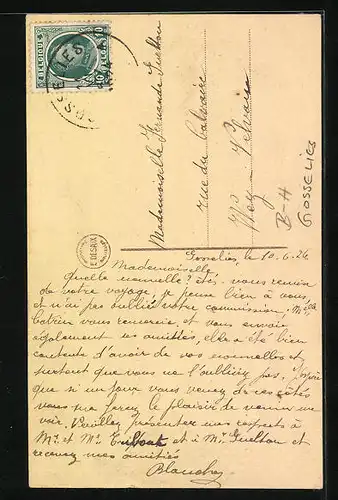 BELGIQUE
Mademoiselle Fernande
rue du Calvaire
B-H
GOSSELIES
DESAIX
Gosselies, le 10.6.26
Mademoiselle,
Quelle nouvelle? êtes-vous remise
de votre voyage, je pense bien à vous,
et n'ai pas oublié votre commission. Mme
vous remercie, et vous envoie
également ses amitiés, elle a été bien
contente d'avoir de vos nouvelles et
surtout que vous ne l'oubliez pas. J'espère
que si un jour vous venez de ces côtés
vous me ferez le plaisir de venir me
voir. Veuillez présenter mes respects à
Mr. et Me. et à Mr. et
recevez mes amitiés
Blanche